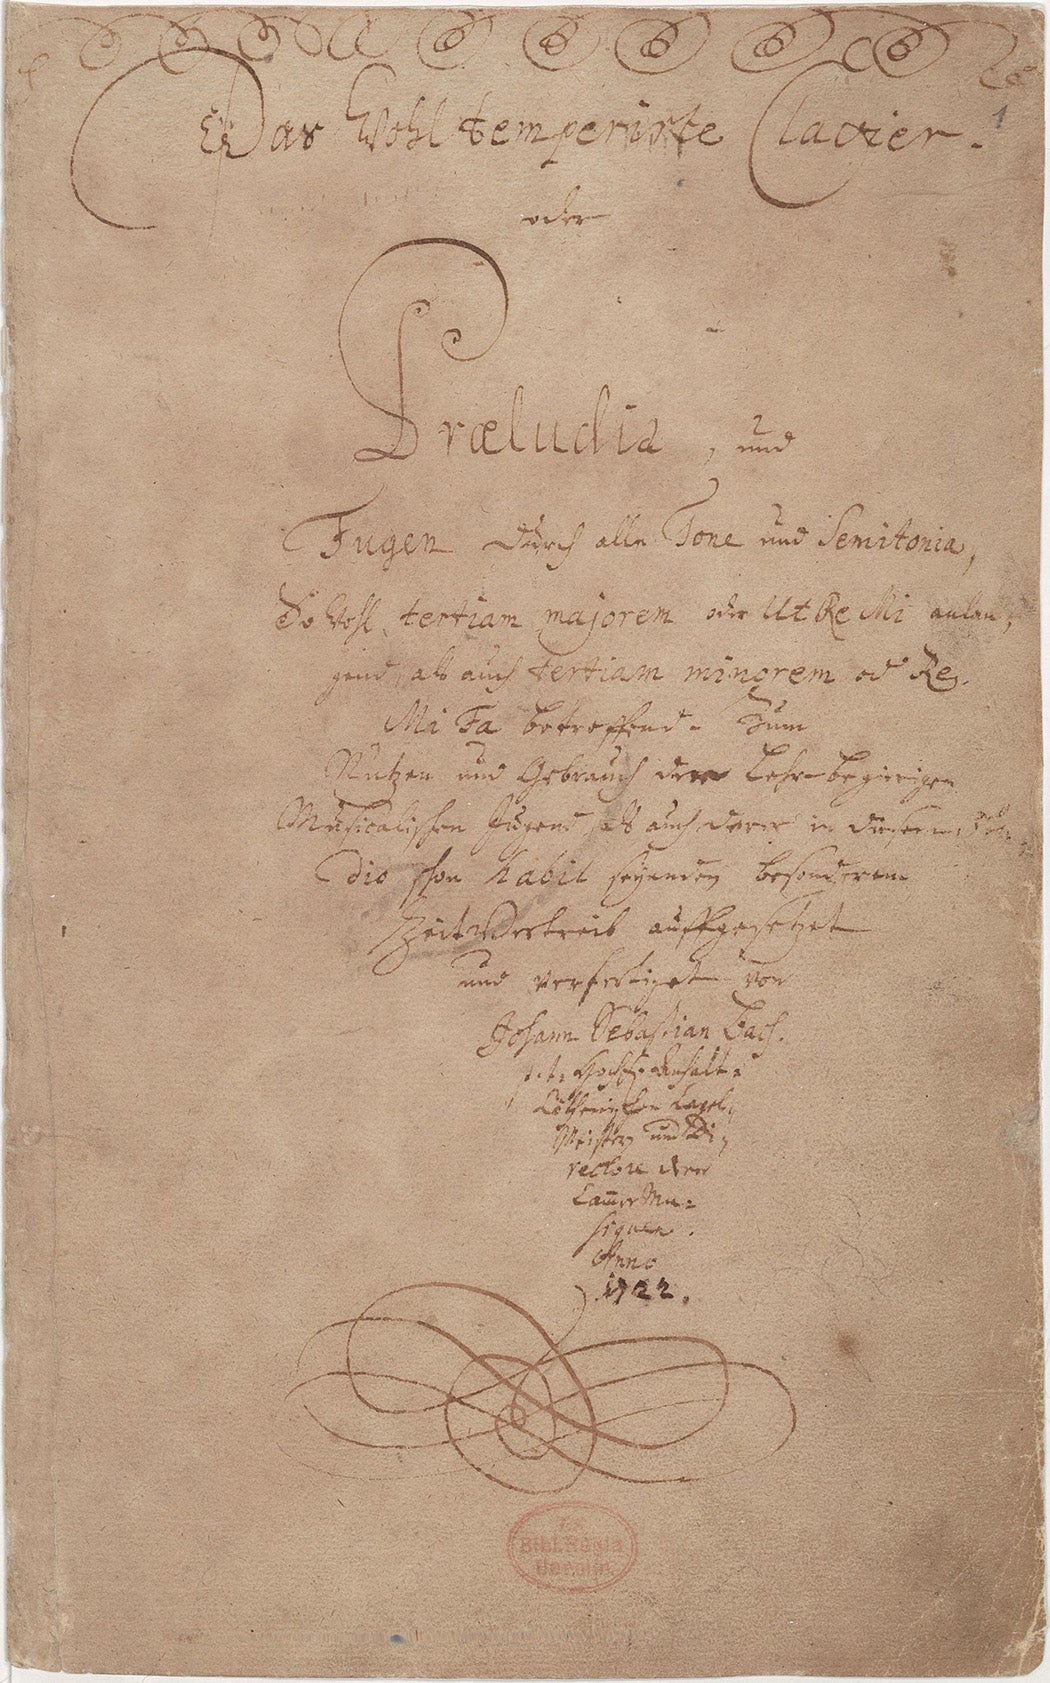 1
Das Wohltemperirte Clavier.
oder
Præludia, und
Fugen durch alle Tone und Semitonia,
So wohl tertiam majorem oder Ut Re Mi anlan,
gend, als auch tertiam minorem od Re
Mi Fa betreffend. Zum
Nutzen und Gebrauch der Lehr-begierigen
Musicalischen Jugend, als auch derer in diesem stu,
dio schon habil seyenden besonderem
Zeitvertreib auffgesetzet
und verfertiget von
Johann Sebastian Bach.
p. t: Hochf. Anhalt-
Cöthenischen Capel,
Meistern und Di,
rectore derer
Cammer Mu-
siquen.
Anno
1722.
Bibl. Regia
Berolin.